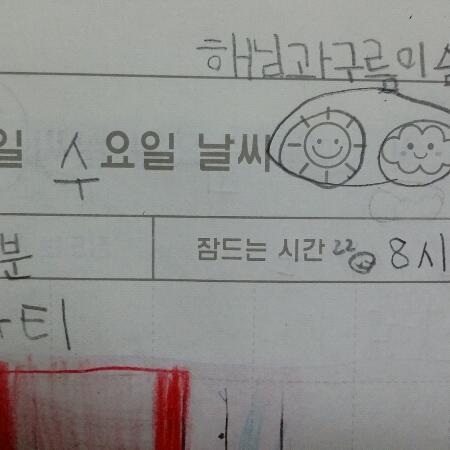 해님과구름이
일 수요일 날씨
분 잠드는 시간 22 8시
티